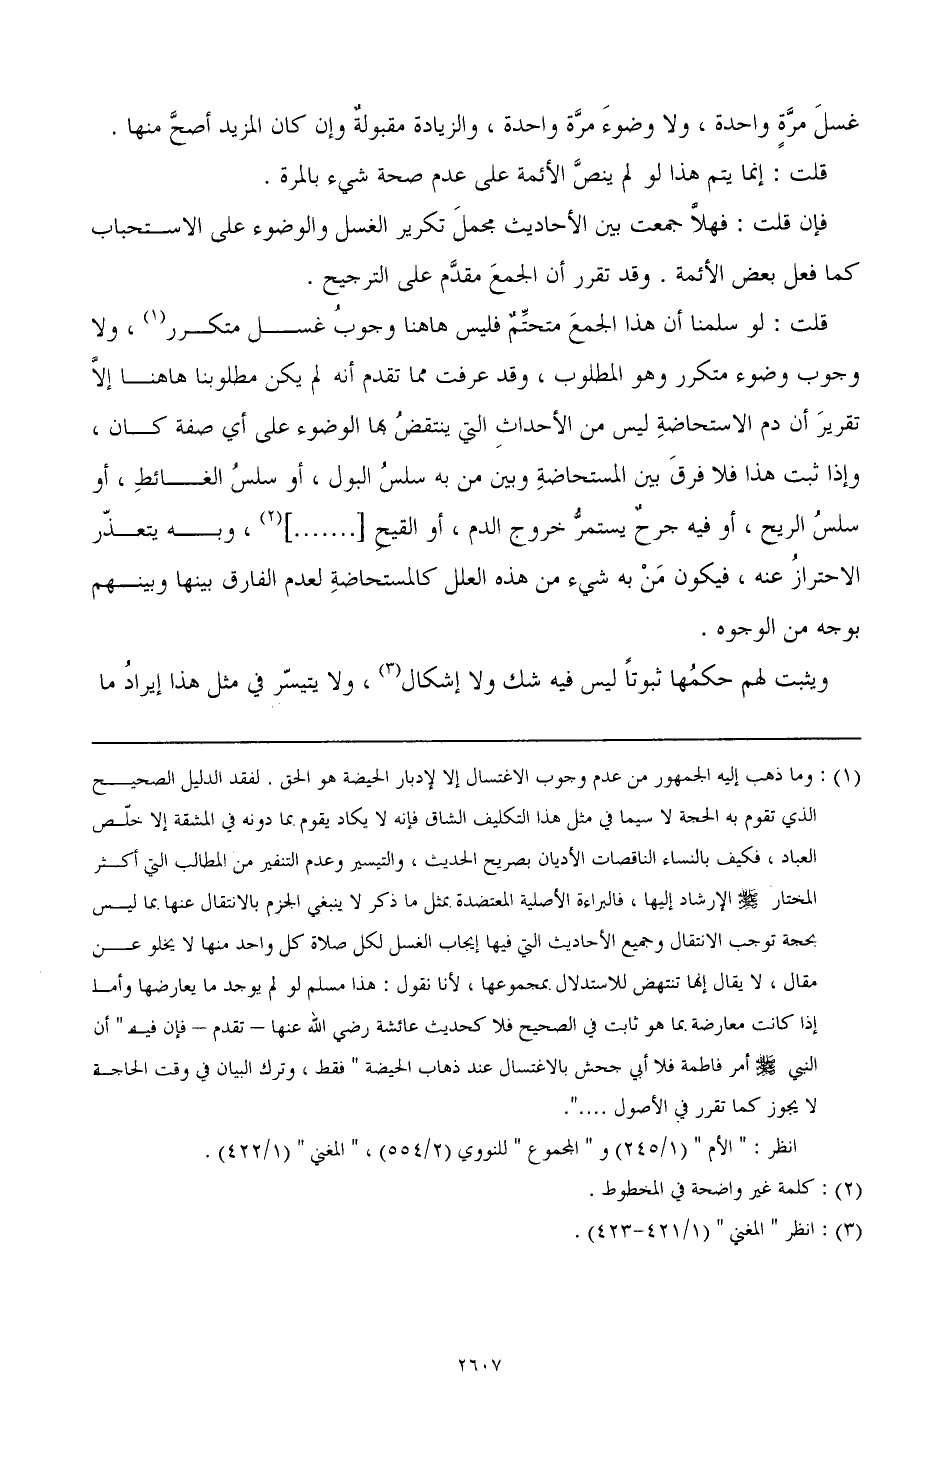 غسلَ مرَّةٍ واحدة ، ولا وضوءَ مرَّة واحدة ، والزيادة مقبولةٌ وإن كان المزيد أصحَّ منها .
قلت : إنما يتم هذا لو لم ينصَّ الأئمة على عدم صحة شيء بالمرة .
فإن قلت : فهلاَّ جمعت بين الأحاديث بحملَ تكرير الغسل والوضوء على الاستحباب
كما فعل بعض الأئمة . وقد تقرر أن الجمعَ مقدَّم على الترجيح .
قلت : لو سلمنا أن هذا الجمعَ متحتِّمٌ فليس هاهنا وجوبُ غسل متكرر(١) ، ولا
وجوب وضوء متكرر وهو المطلوب ، وقد عرفت مما تقدم أنه لم يكن مطلوبنا هاهنا إلاَّ
تقريرَ أن دم الاستحاضةِ ليس من الأحداثِ التي ينتقضُ بها الوضوء على أي صفة كان ،
وإذا ثبت هذا فلا فرقَ بين المستحاضةِ وبين من به سلسُ البول ، أو سلسُ الغائطِ ، أو
سلسُ الريح ، أو فيه جرحٌ يستمرُّ خروج الدم ، أو القيحِ [.......](٢) ، وبه يتعذّر
الاحترازُ عنه ، فيكون مَنْ به شيء من هذه العلل كالمستحاضةِ لعدم الفارق بينها وبينهم
بوجه من الوجوه .
ويثبت لهم حكمُها ثبوتاً ليس فيه شك ولا إشكال(٣) ، ولا يتيسّر في مثل هذا إيرادُ ما
(١) : وما ذهب إليه الجمهور من عدم وجوب الاغتسال إلا لإدبار الحيضة هو الحق . لفقد الدليل الصحيح
الذي تقوم به الحجة لا سيما في مثل هذا التكليف الشاق فإنه لا يكاد يقوم بما دونه في المشقة إلا خلّص
العباد ، فكيف بالنساء الناقصات الأديان بصريح الحديث ، والتيسير وعدم التنفير من المطالب التي أكثر
المختار ﷺ الإرشاد إليها ، فالبراءة الأصلية المعتضدة بمثل ما ذكر لا ينبغي الجزم بالانتقال عنها بما ليس
بحجة توجب الانتقال وجميع الأحاديث التي فيها إيجاب الغسل لكل صلاة كل واحد منها لا يخلو عن
مقال ، لا يقال إنها تنتهض للاستدلال بمجموعها ، لأنا نقول : هذا مسلم لو لم يوجد ما يعارضها وأما
إذا كانت معارضة بما هو ثابت في الصحيح فلا كحديث عائشة رضي الله عنها – تقدم – فإن فيه " أن
النبي ﷺ أمر فاطمة فلا أبي جحش بالاغتسال عند ذهاب الحيضة " فقط ، وترك البيان في وقت الحاجة
لا يجوز كما تقرر في الأصول ....".
انظر : " الأم " (٢٤٥/١) و " المجموع " للنووي (٥٥٤/٢) ، " المغني " (٤٢٢/١) .
(٢) : كلمة غير واضحة في المخطوط .
(٣) : انظر " المغني " (٤٢١/١-٤٢٣) .
٢٦٠٧